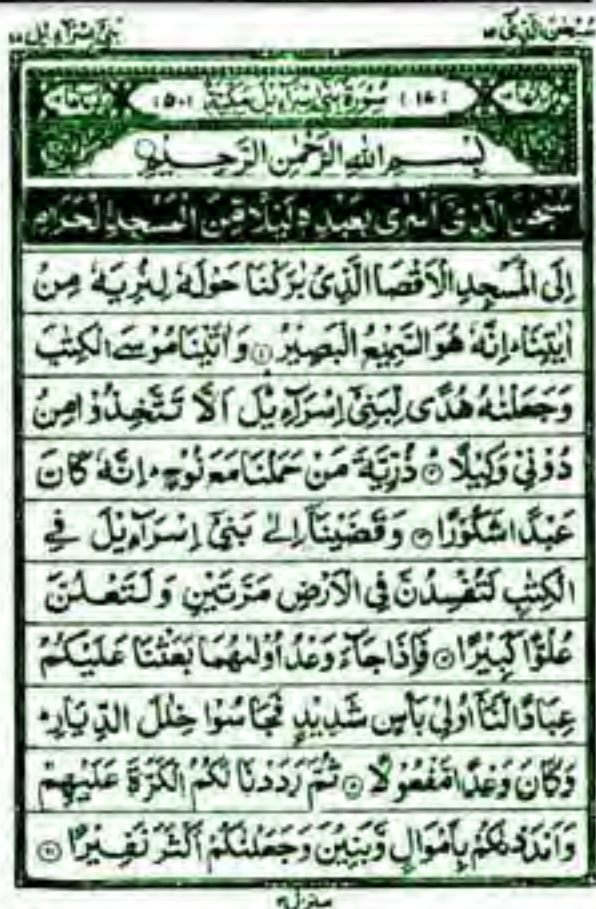 سُبْحٰنَ الَّذِیْ ١٥ بَنِیْ اِسْرَآءِیْل
(١٧) سُوْرَةُ بَنِیْ اِسْرَآءِیْلَ مَكِّیَّةٌ (٥٠)
بِسْمِ اللهِ الرَّحْمٰنِ الرَّحِیْمِ
سُبْحٰنَ الَّذِیْۤ اَسْرٰی بِعَبْدِهٖ لَیْلًا مِّنَ الْمَسْجِدِ الْحَرَامِ
اِلَی الْمَسْجِدِ الْاَقْصَا الَّذِیْ بٰرَكْنَا حَوْلَهٗ لِنُرِیَهٗ مِنْ
اٰیٰتِنَا ؕ اِنَّهٗ هُوَ السَّمِیْعُ الْبَصِیْرُ ۝١ وَاٰتَیْنَا مُوْسَی الْكِتٰبَ
وَجَعَلْنٰهُ هُدًی لِّبَنِیْۤ اِسْرَآءِیْلَ اَلَّا تَتَّخِذُوْا مِنْ
دُوْنِیْ وَكِیْلًا ۝٢ ذُرِّیَّةَ مَنْ حَمَلْنَا مَعَ نُوْحٍ ؕ اِنَّهٗ كَانَ
عَبْدًا شَكُوْرًا ۝٣ وَقَضَیْنَاۤ اِلٰی بَنِیْۤ اِسْرَآءِیْلَ فِی
الْكِتٰبِ لَتُفْسِدُنَّ فِی الْاَرْضِ مَرَّتَیْنِ وَلَتَعْلُنَّ
عُلُوًّا كَبِیْرًا ۝٤ فَاِذَا جَآءَ وَعْدُ اُوْلٰىهُمَا بَعَثْنَا عَلَیْكُمْ
عِبَادًا لَّنَاۤ اُولِیْ بَاْسٍ شَدِیْدٍ فَجَاسُوْا خِلٰلَ الدِّیَارِ ؕ
وَكَانَ وَعْدًا مَّفْعُوْلًا ۝٥ ثُمَّ رَدَدْنَا لَكُمُ الْكَرَّةَ عَلَیْهِمْ
وَاَمْدَدْنٰكُمْ بِاَمْوَالٍ وَّبَنِیْنَ وَجَعَلْنٰكُمْ اَكْثَرَ نَفِیْرًا ۝٦
منزل ٤